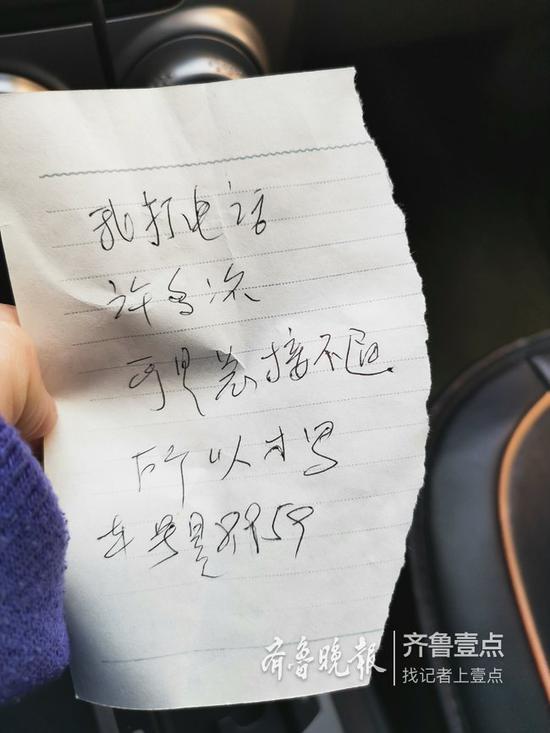 我打电话
许多次
可是总接不通
所以才写
车号是8959
齐鲁晚报
齐鲁壹点
找记者上壹点